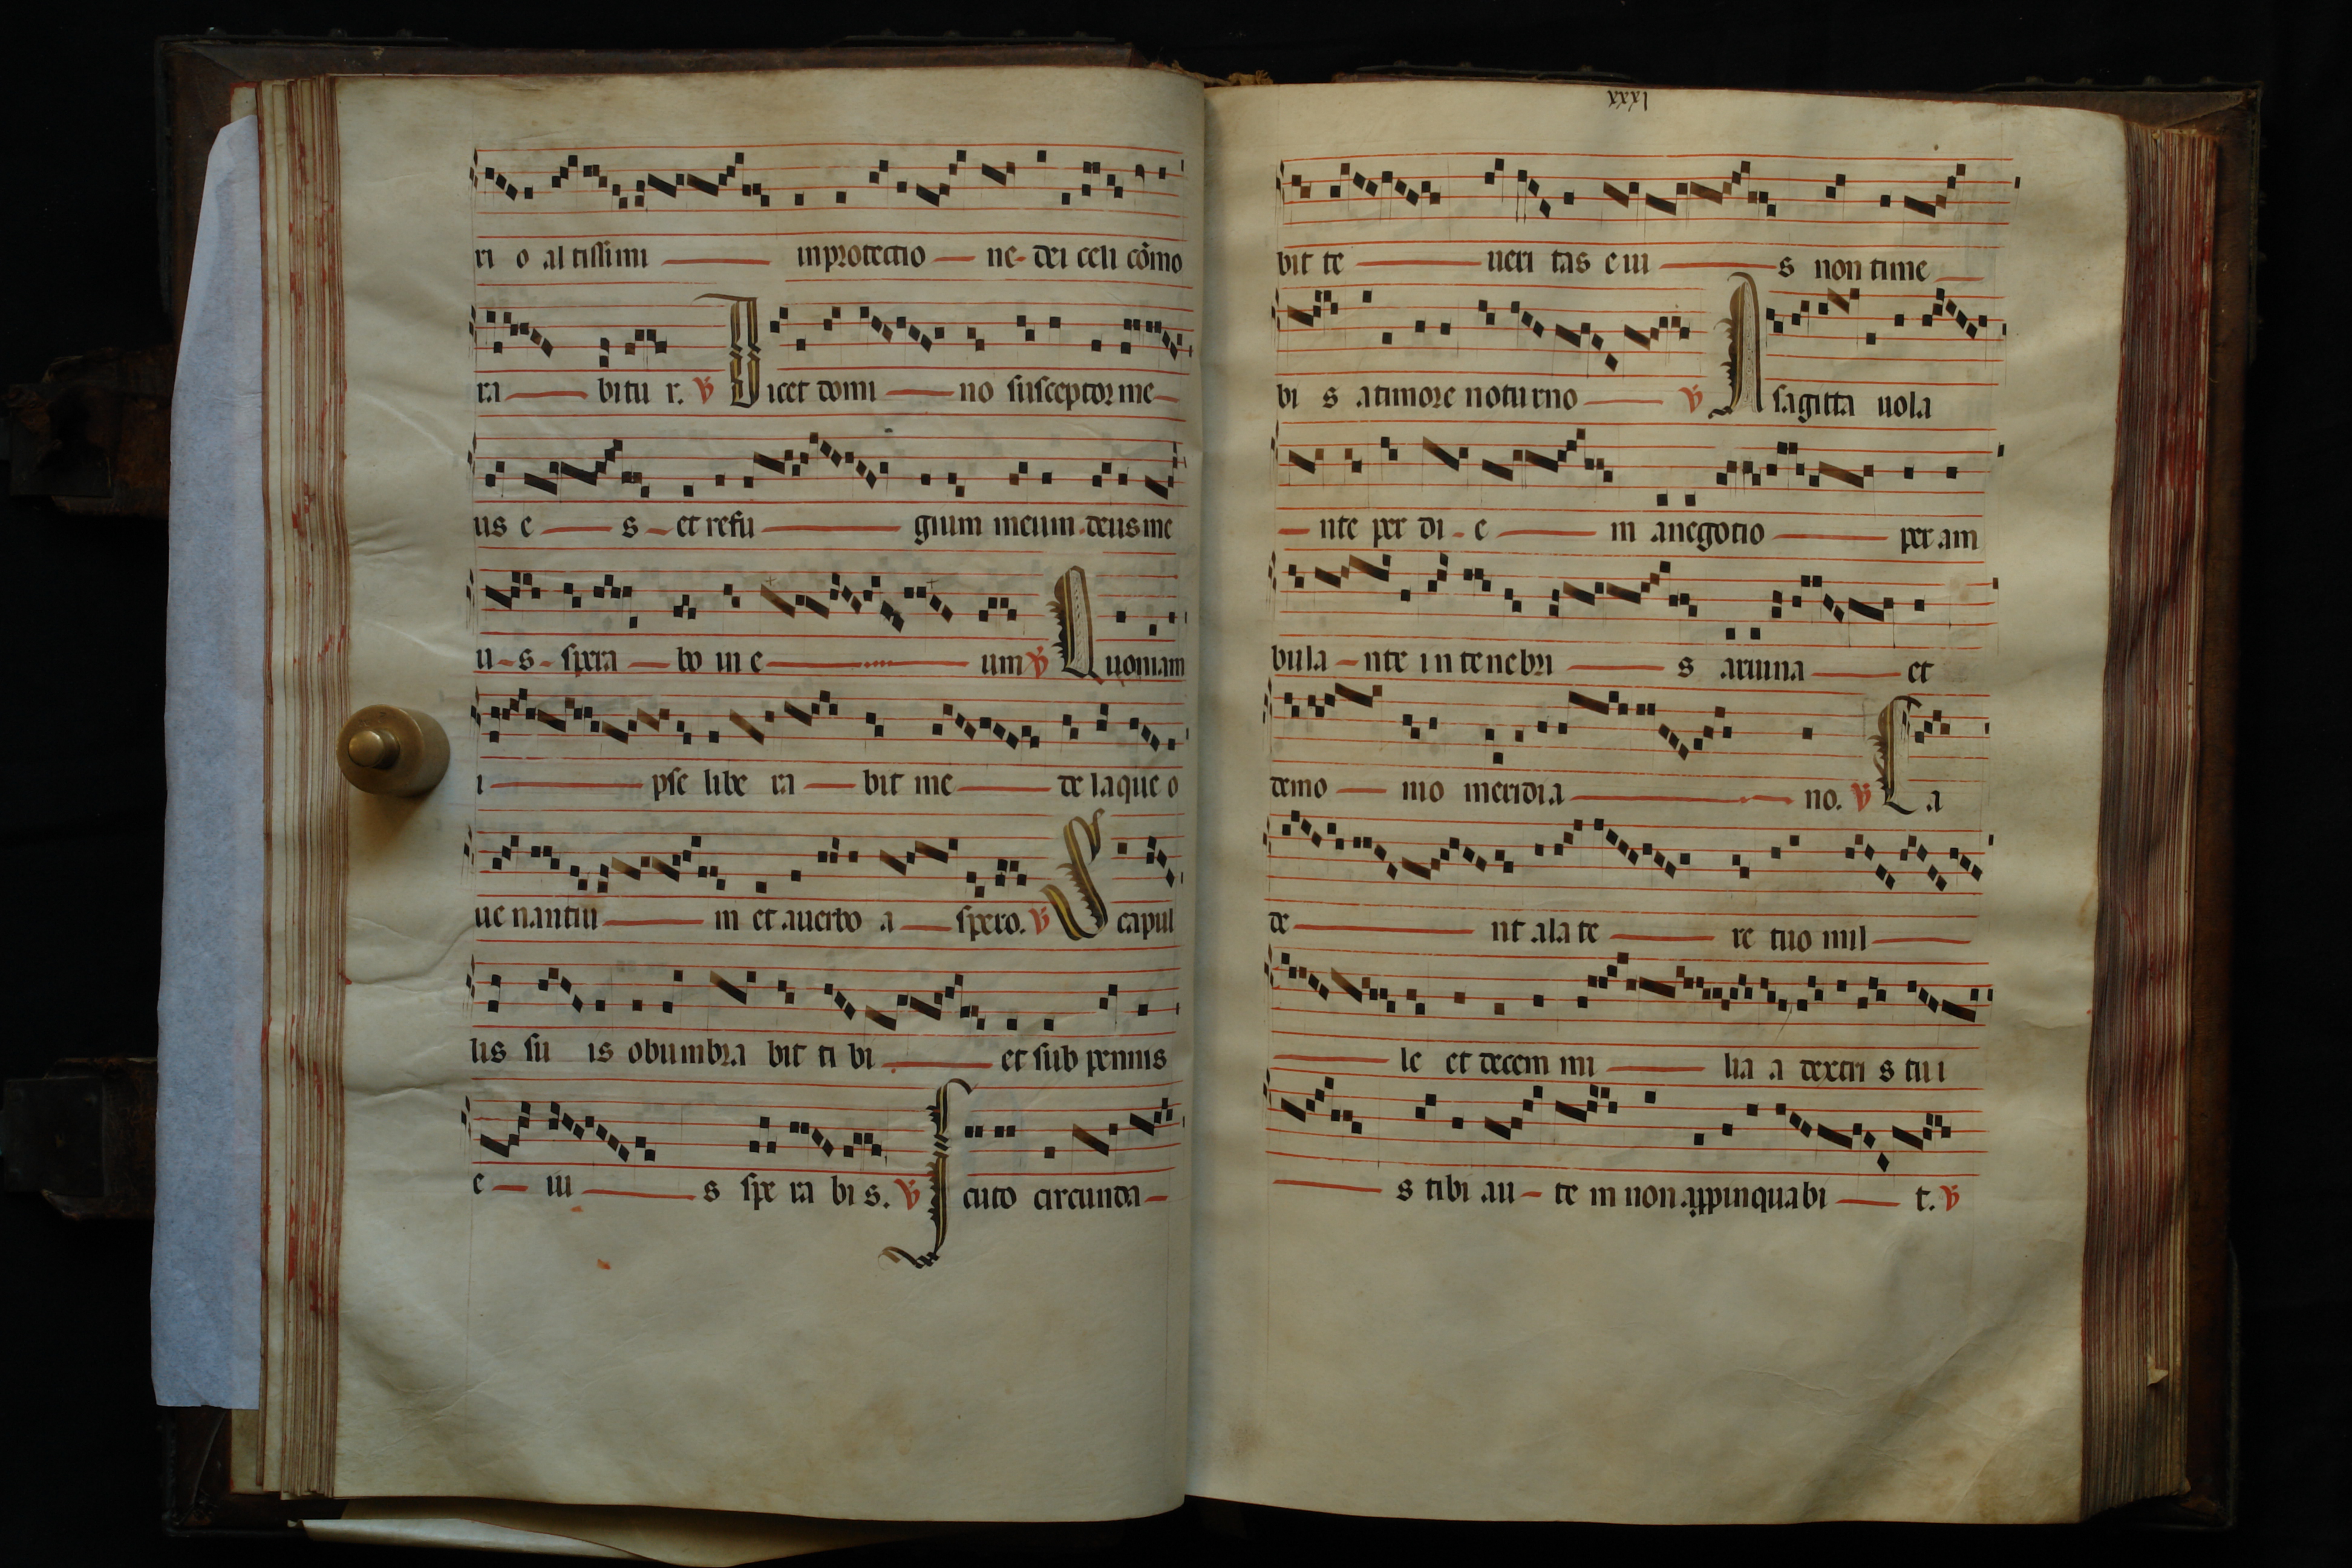 ri o al tissimi inprotectio ne dei celi cōmo
ra bitu r. ℣ Dicet domi no susceptor me
us e s et refu gium meum deus me
u s spera bo in e um ℣ Quoniam
i pse libe ra bit me de laque o
ue nantiu m et auerbo a spero. ℣ Scapul
lis su is obumbra bit ti bi et sub pennis
e iu s spe ra bi s. ℣ Scuto circunda
lxxx
bit te ueri tas e iu s non time
bi s atimore noturno ℣ A sagitta uola
nte per di e m anegotio per am
bula nte in tenebri s aruina et
demo mo meridia no. ℣ Ca
de nt ala te re tuo mil
le et decem mi lia a dextri s tui
s tibi au te m non appinquabi t. ℣